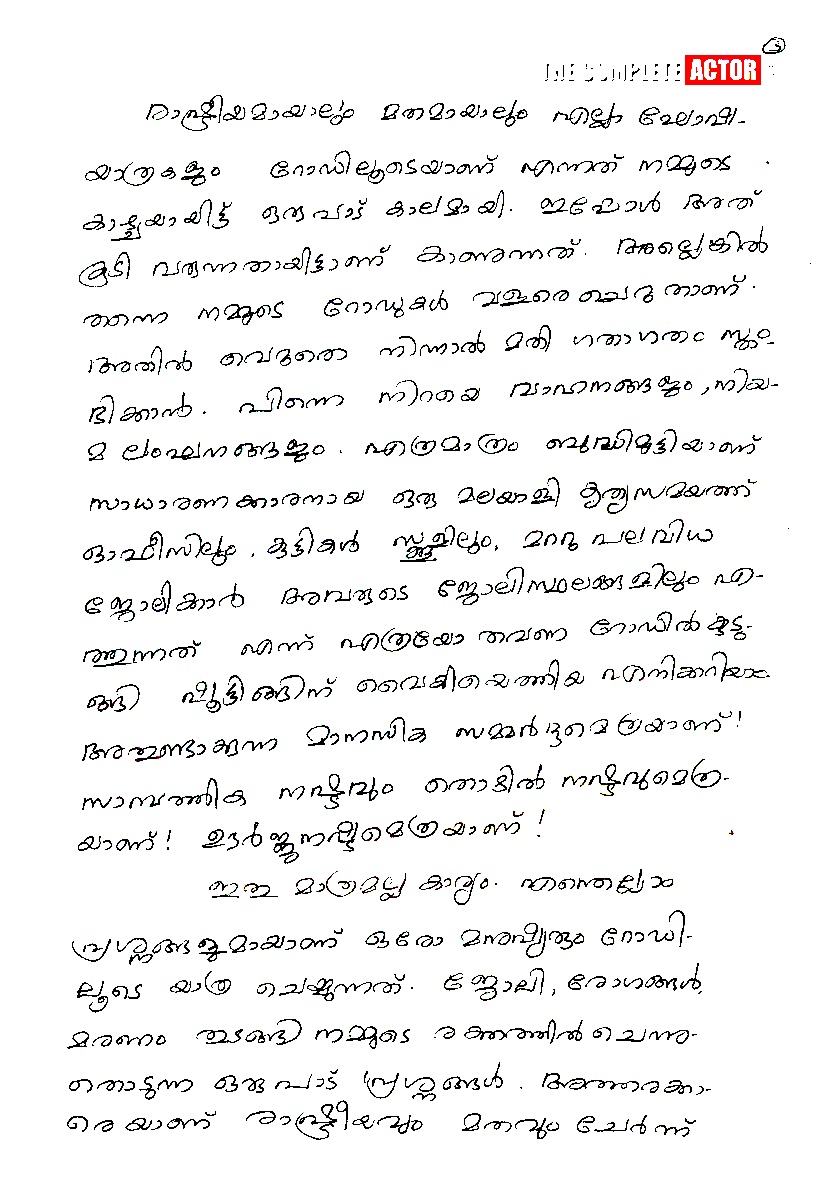 3
THE COMPLETE ACTOR
രാഷ്ട്രീയമായാലും മതമായാലും എല്ലാ ഘോഷ-
യാത്രകളും റോഡിലൂടെയാണ് എന്നത് നമ്മുടെ
കാഴ്ചയായിട്ട് ഒരുപാട് കാലമായി. ഇപ്പോൾ അത്
കൂടി വരുന്നതായിട്ടാണ് കാണുന്നത്. അല്ലെങ്കിൽ
തന്നെ നമ്മുടെ റോഡുകൾ വളരെ ചെറുതാണ്.
അതിൽ വെറുതെ നിന്നാൽ മതി ഗതാഗതം സ്തം-
ഭിക്കാൻ. പിന്നെ നിറയെ വാഹനങ്ങളും, നിയ-
മ ലംഘനങ്ങളും. എത്രമാത്രം ബുദ്ധിമുട്ടിയാണ്
സാധാരണക്കാരനായ ഒരു മലയാളി കൃത്യസമയത്ത്
ഓഫീസിലും, കുട്ടികൾ സ്കൂളിലും, മററു പലവിധ
ജോലിക്കാർ അവരുടെ ജോലിസ്ഥലങ്ങളിലും എ-
ത്തുന്നത് എന്ന് എത്രയോ തവണ റോഡിൽ കുടു-
ങ്ങി ഷൂട്ടിങ്ങിന് വൈകിയെത്തിയ എനിക്കറിയാം.
അതുണ്ടാക്കുന്ന മാനസിക സമ്മർദ്ദമെത്രയാണ്!
സാമ്പത്തിക നഷ്ടവും തൊഴിൽ നഷ്ടവുമെത്ര-
യാണ്! ഊർജ്ജനഷ്ടമെത്രയാണ്!
ഇതു മാത്രമല്ല കാര്യം. എന്തെല്ലാം
പ്രശ്നങ്ങളുമായാണ് ഒരോ മനുഷ്യരും റോഡി-
ലൂടെ യാത്ര ചെയ്യുന്നത്. ജോലി, രോഗങ്ങൾ,
മരണം തുടങ്ങി നമ്മുടെ രക്തത്തിൽ ചെന്നു-
തൊടുന്ന ഒരുപാട് പ്രശ്നങ്ങൾ. അത്തരക്കാ-
രെയാണ് രാഷ്ട്രീയവും മതവും ചേർന്ന്